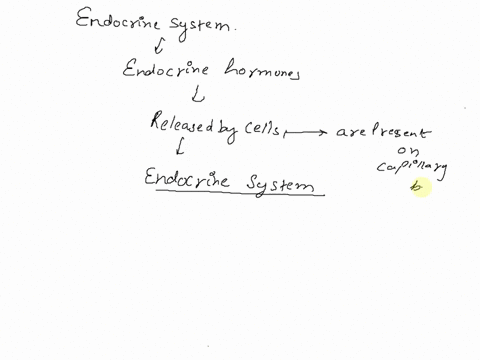 Endocrine system.
Endocrine hormones
Released by cells, → are Present
on
capillary
b
Endocrine System